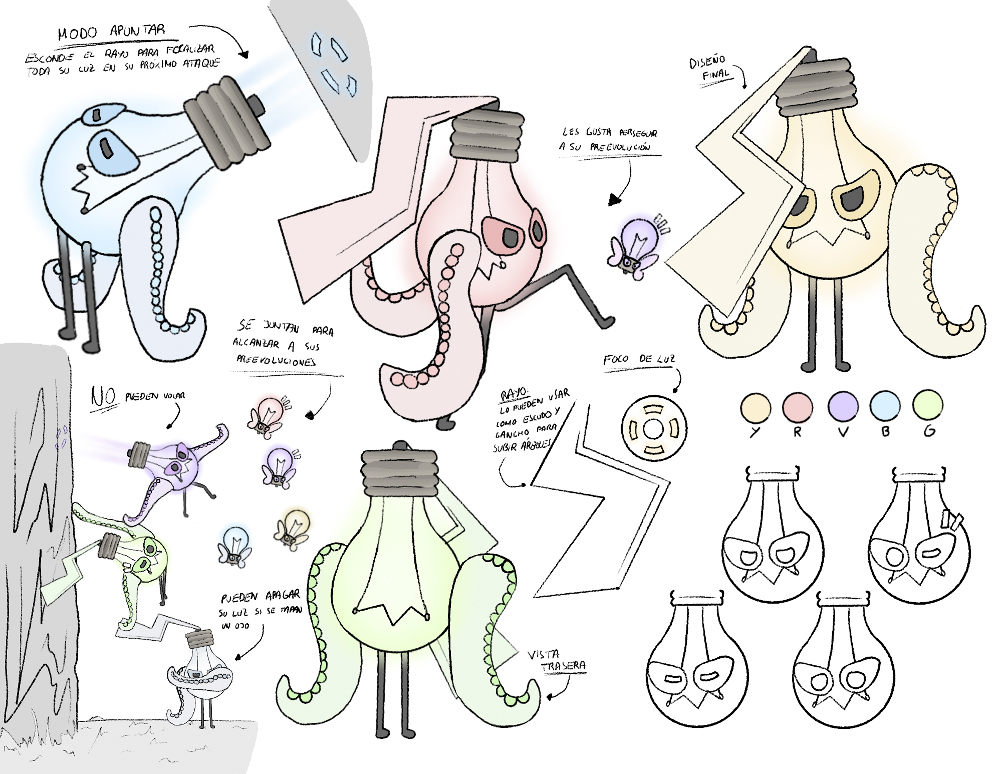 MODO APUNTAR
ESCONDE EL RAYO PARA FOCALIZAR
TODA SU LUZ EN SU PRÓXIMO ATAQUE
DISEÑO
FINAL
LES GUSTA PERSEGUIR
A SU PREEVOLUCIÓN
SE JUNTAN PARA
ALCANZAR A SUS
PREEVOLUCIONES
FOCO DE LUZ
NO PUEDEN VOLAR
RAYO:
LO PUEDEN USAR
COMO ESCUDO Y
GANCHO PARA
SUBIR ÁRBOLES
Y R V B G
PUEDEN APAGAR
SU LUZ SI SE TAPAN
UN OJO
VISTA
TRASERA